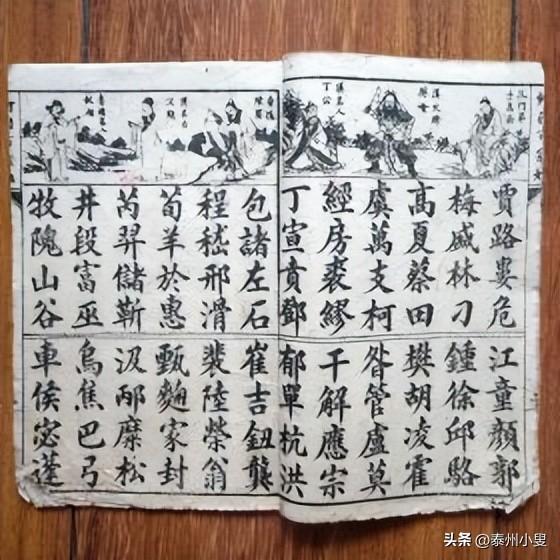 漢名人
丁公
賈路婁危
江童顏郭
梅盛林刁
鍾徐邱駱
髙夏蔡田
樊胡凌霍
虞萬支柯
昝管盧莫
經房裘繆
干解應宗
丁宣賁鄧
郁單杭洪
包諸左石
崔吉鈕龔
程嵇邢滑
裴陸榮翁
荀羊於惠
甄麴家封
芮羿儲靳
汲邴糜松
井段富巫
烏焦巴弓
牧隗山谷
車侯宓蓬
头条 @泰州小叟